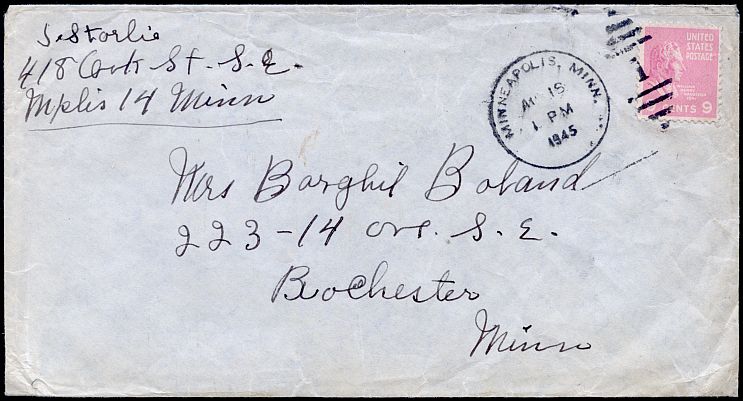 S. Storlie
418 Cook St. S.E.
Mplis 14 Minn
MINNEAPOLIS, MINN.
1 PM
1945
UNITED
STATES
POSTAGE
CENTS 9
Mrs Borghil Boland
223-14 ave. S.E.
Rochester
Minn